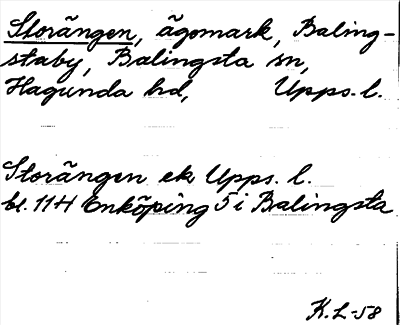 Storängen, ägomark, Baling-
staby, Balingsta sn,
Hagunda hd, Upps. l.
Storängen ek Upps. l.
bl. 11H Enköping 5 i Balingsta
K.L-58